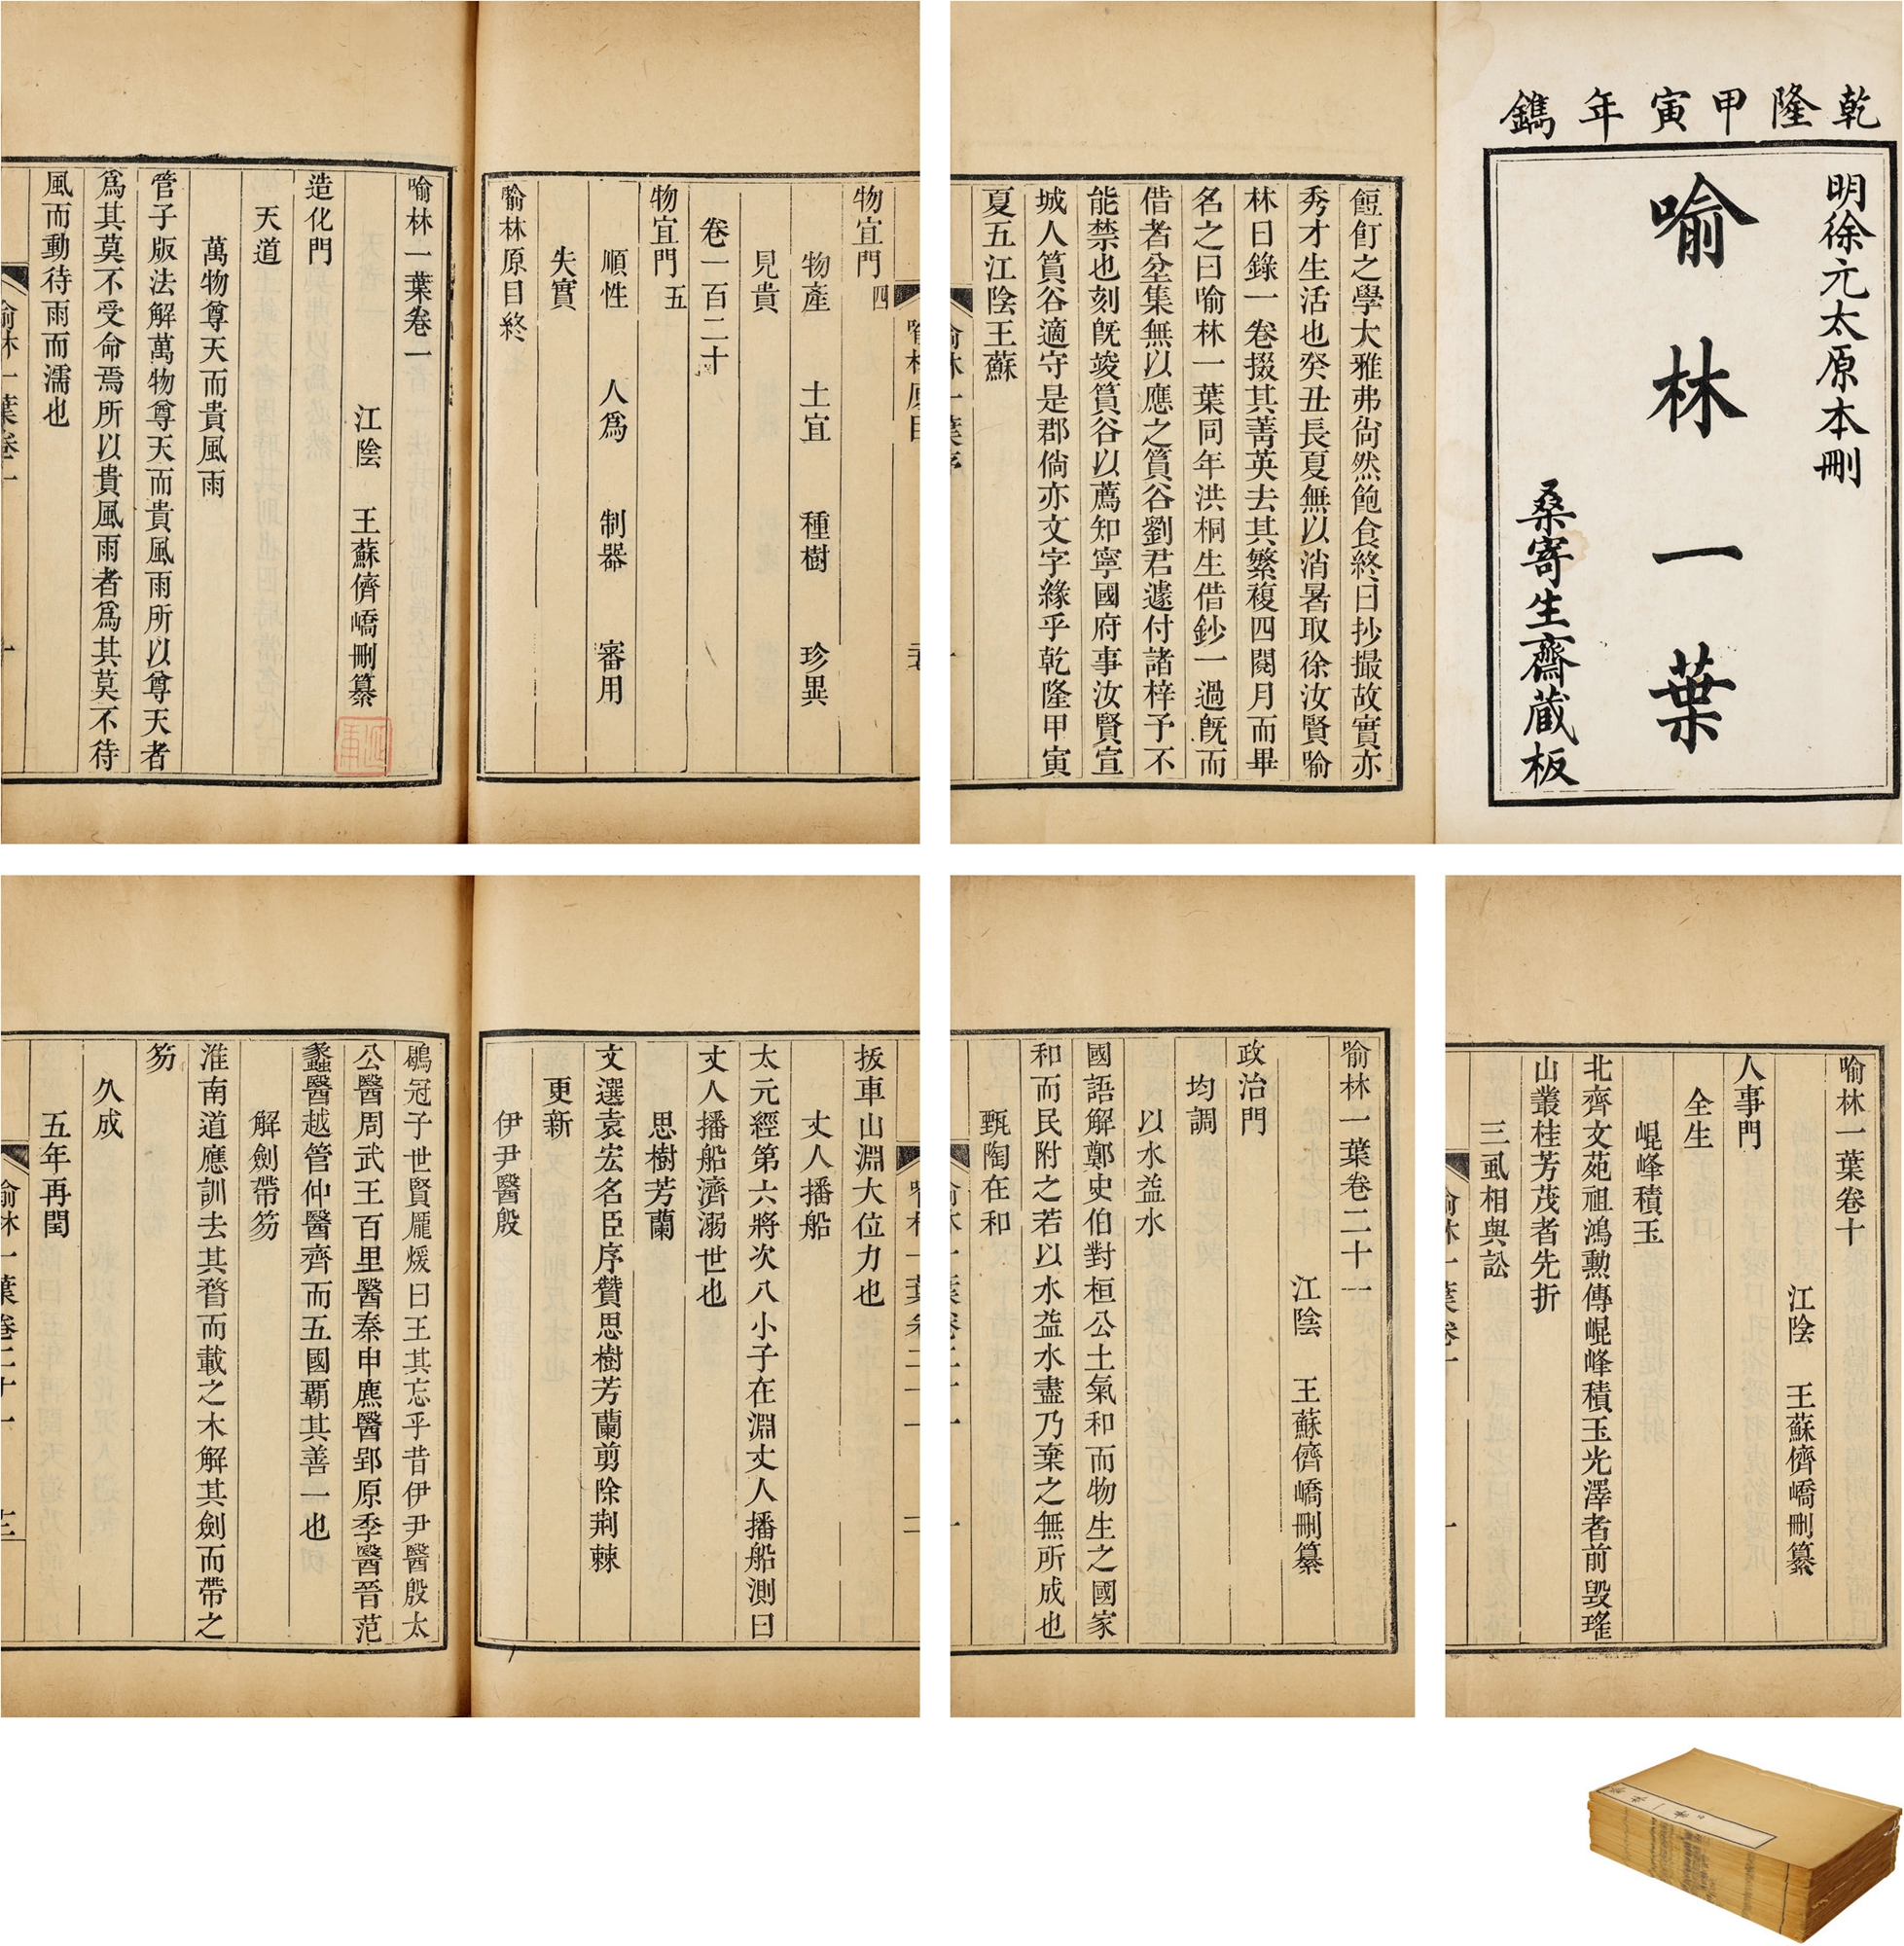 乾隆甲寅年鐫
明徐元太原本刪
喻林一葉
桑寄生齋藏板
餖飣之學大雅弗尙然飽食終日抄撮故實亦
秀才生活也癸丑長夏無以消暑取徐汝賢喻
林日錄一卷掇其菁英去其繁複四閱月而畢
名之曰喻林一葉同年洪桐生借鈔一過旣而
借者坌集無以應之篔谷劉君遽付諸梓予不
能禁也刻旣竣篔谷以薦知寧國府事汝賢宣
城人篔谷適守是郡倘亦文字緣乎乾隆甲寅
夏五江陰王蘇
物宜門四
物產 土宜 種樹 珍異
見貴
卷一百二十
物宜門五
順性 人爲 制器 審用
失實
喻林原目終
喻林一葉卷一
江陰 王蘇儕嶠刪纂
造化門
天道
萬物尊天而貴風雨
管子版法解萬物尊天而貴風雨所以尊天者
爲其莫不受命焉所以貴風雨者爲其莫不待
風而動待雨而濡也
喻林一葉卷十
江陰 王蘇儕嶠刪纂
人事門
全生
崐峰積玉
北齊文苑祖鴻勲傳崐峰積玉光澤者前毀瑤
山叢桂芳茂者先折
三虱相與訟
喻林一葉卷二十一
江陰 王蘇儕嶠刪纂
政治門
均調
以水益水
國語解鄭史伯對桓公土氣和而物生之國家
和而民附之若以水益水盡乃棄之無所成也
甄陶在和
扳車山淵大位力也
丈人播船
太元經第六將次八小子在淵丈人播船測曰
丈人播船濟溺世也
思樹芳蘭
文選袁宏名臣序贊思樹芳蘭剪除荆棘
更新
伊尹醫殷
鶡冠子世賢龎煖曰王其忘乎昔伊尹醫殷太
公醫周武王百里醫秦申麃醫郢原季醫晉范
蠡醫越管仲醫齊而五國覇其善一也
解劍帶笏
淮南道應訓去其瞀而載之木解其劍而帶之
笏
久成
五年再閏